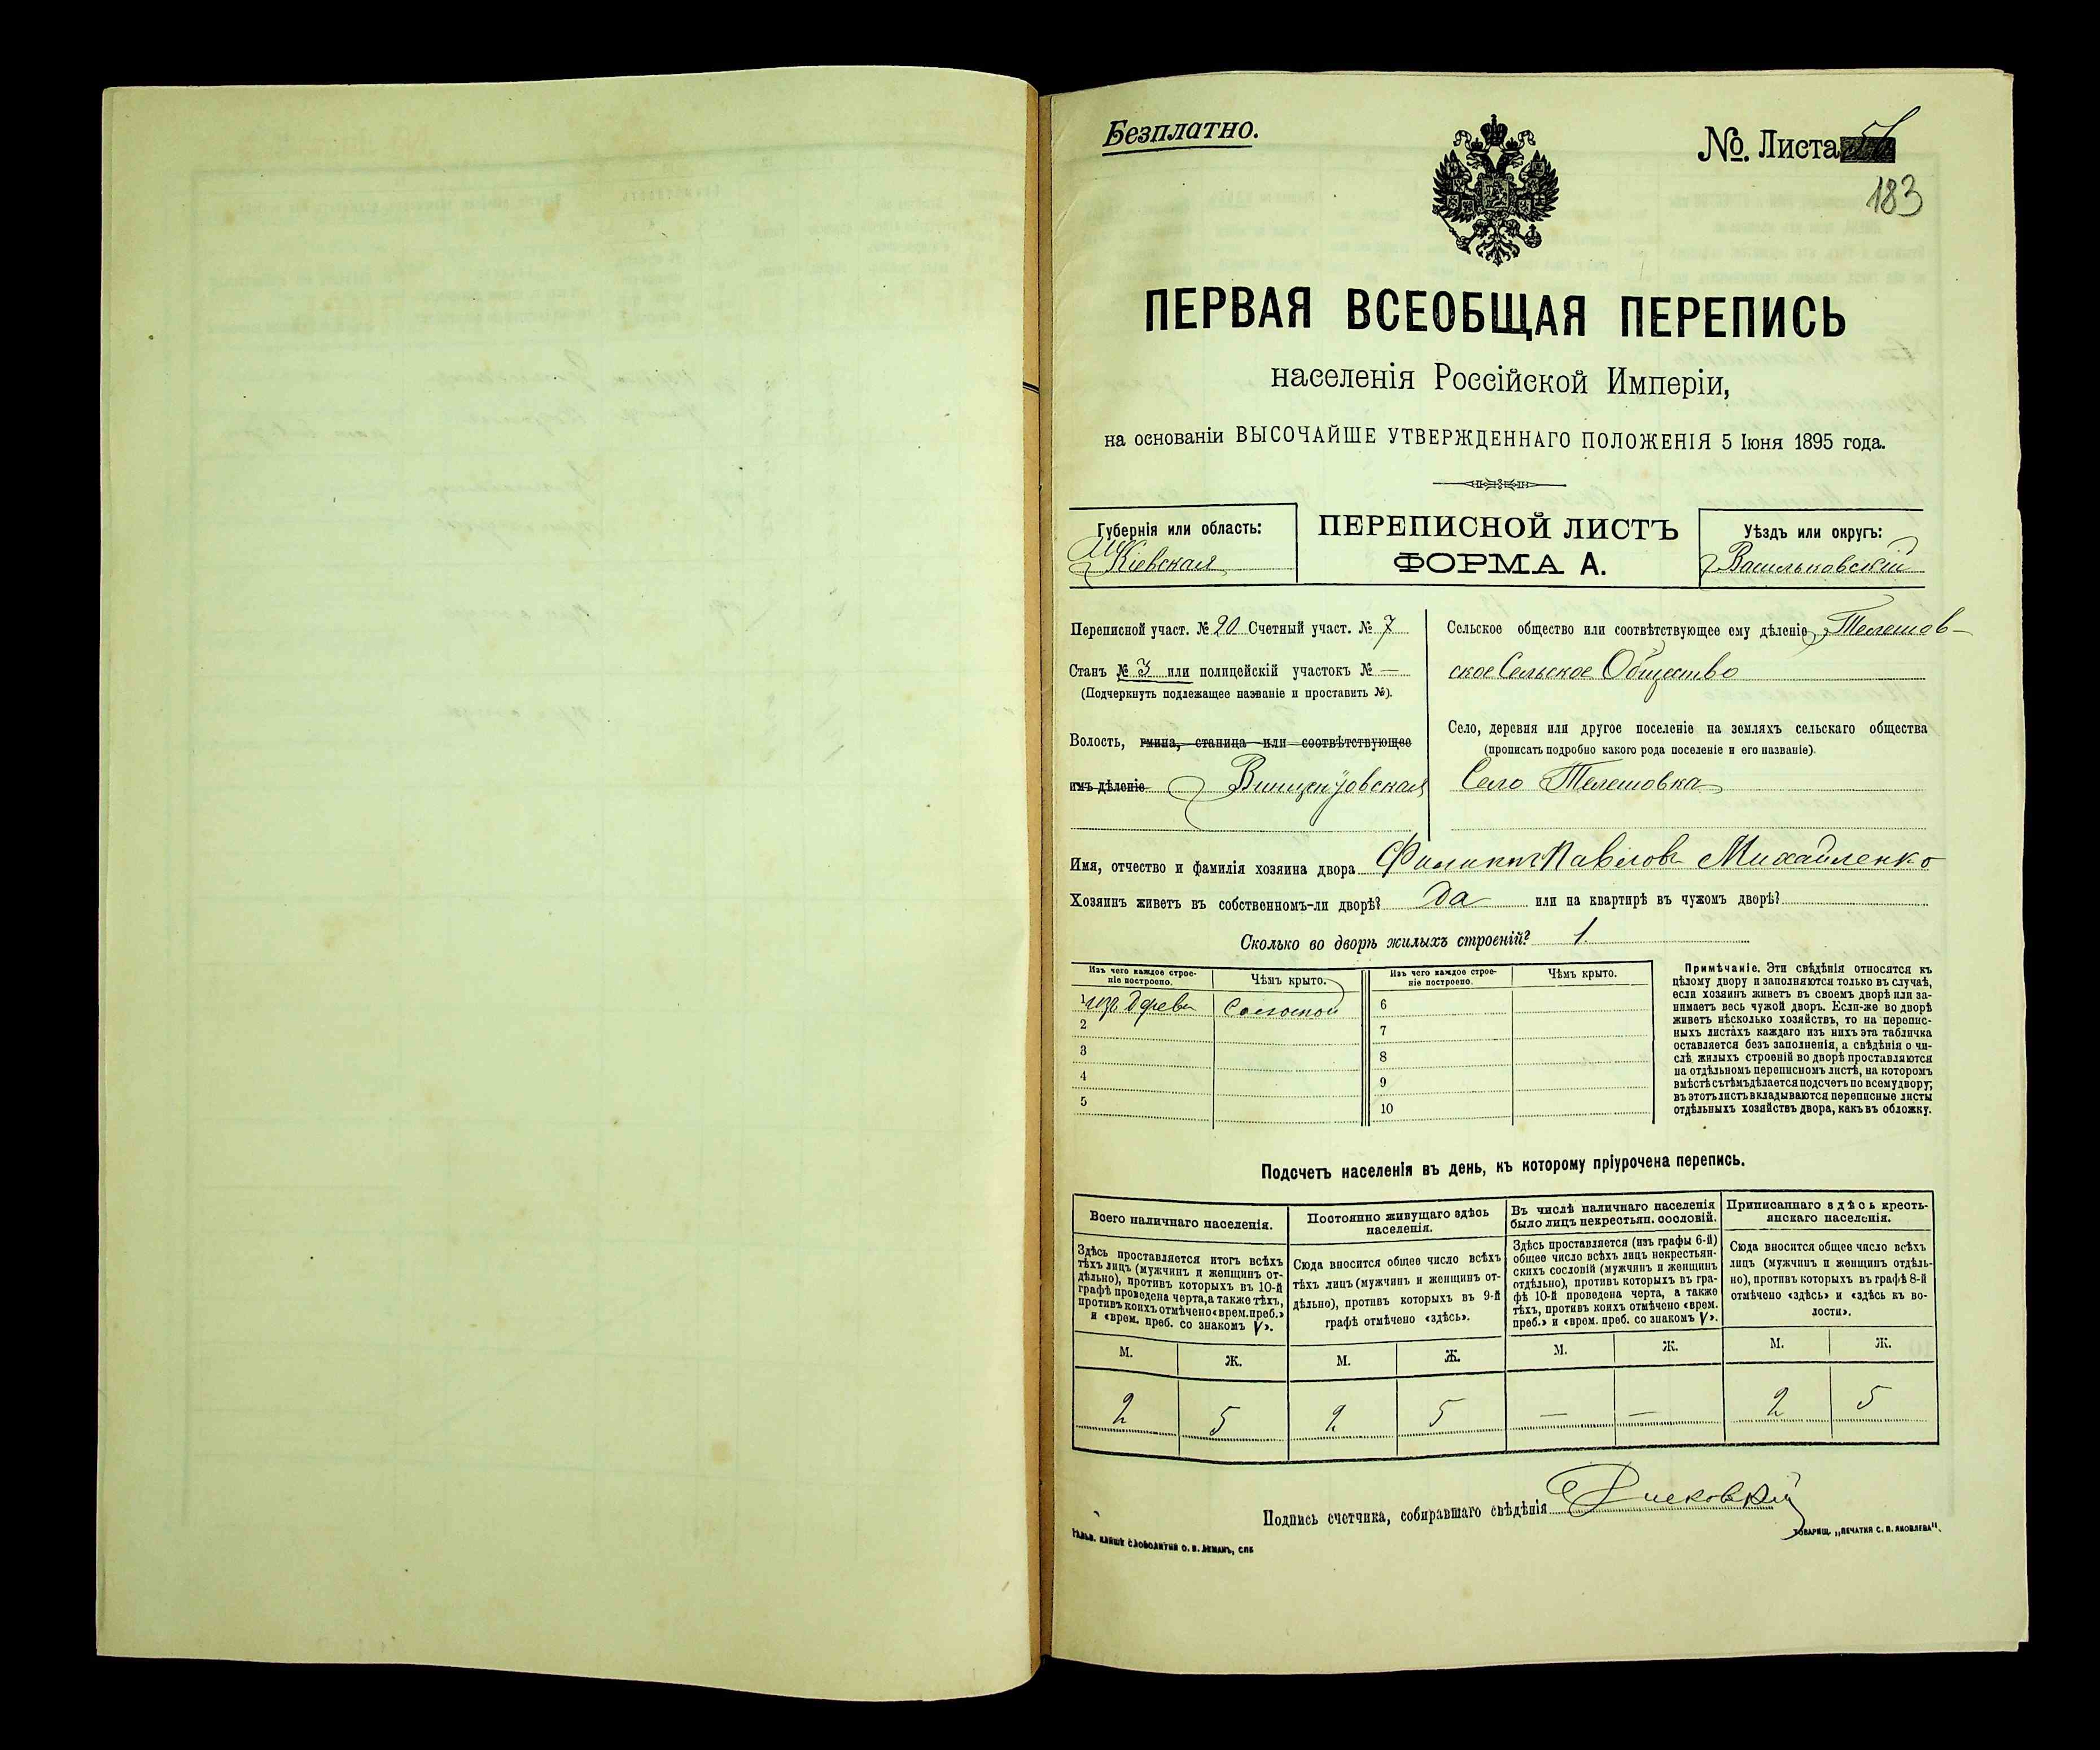 Безплатно.
№. Листа
183
ПЕРВАЯ ВСЕОБЩАЯ ПЕРЕПИСЬ
населенія Россійской Имперіи,
на основаніи ВЫСОЧАЙШЕ УТВЕРЖДЕННАГО ПОЛОЖЕНІЯ 5 Іюня 1895 года.
Губернія или область:
Кіевская
ПЕРЕПИСНОЙ ЛИСТЪ
ФОРМА А.
Уѣздъ или округъ:
Васильковскій
Переписной участ. № 20 Счетный участ. № 7
Станъ № 3 или полицейскій участокъ № —
(Подчеркнуть подлежащее названіе и проставить №).
Волость, гмина, станица или соотвѣтствующее
имъ дѣленіе
Сельское общество или соотвѣтствующее ему дѣленіе Телешов-
ское Сельское Общество
Село, деревня или другое поселеніе на земляхъ сельскаго общества
(прописать подробно какого рода поселеніе и его названіе).
Село Телешовка
Имя, отчество и фамилія хозяина двора Филиппъ Павловъ Михайленко
Хозяинъ живетъ въ собственномъ-ли дворѣ? Да или на квартирѣ въ чужомъ дворѣ?
Сколько во дворѣ жилыхъ строеній? 1.
Изъ чего каждое строе-
ніе построено.
Чѣмъ крыто.
Изъ чего каждое строе-
ніе построено.
Чѣмъ крыто.
1 изъ дерева Соломой
2
3
4
5
6
7
8
9
10
Примѣчаніе. Эти свѣдѣнія относятся къ
цѣлому двору и заполняются только въ случаѣ,
если хозяинъ живетъ въ своемъ дворѣ или за-
нимаетъ весь чужой дворъ. Если-же во дворѣ
живетъ нѣсколько хозяйствъ, то на перепис-
ныхъ листахъ каждаго изъ нихъ эта табличка
оставляется безъ заполненія, а свѣдѣнія о чи-
слѣ жилыхъ строеній во дворѣ проставляются
на отдѣльномъ переписномъ листѣ, на которомъ
вмѣстѣ съ тѣмъ дѣлается подсчетъ по всему двору;
въ этотъ листъ вкладываются переписные листы
отдѣльныхъ хозяйствъ двора, какъ въ обложку.
Подсчетъ населенія въ день, къ которому пріурочена перепись.
Всего наличнаго населенія.
Здѣсь проставляется итогъ всѣхъ
тѣхъ лицъ (мужчинъ и женщинъ от-
дѣльно), противъ которыхъ въ 10-й
графѣ проведена черта, а также тѣхъ,
противъ коихъ отмѣчено «врем. преб.»
и «врем. преб. со знакомъ V».
М. Ж.
2 5
Постоянно живущаго здѣсь
населенія.
Сюда вносится общее число всѣхъ
тѣхъ лицъ (мужчинъ и женщинъ от-
дѣльно), противъ которыхъ въ 9-й
графѣ отмѣчено «здѣсь».
М. Ж.
2 5
Въ числѣ наличнаго населенія
было лицъ некрестьян. сословій.
Здѣсь проставляется (изъ графы 6-й)
общее число всѣхъ лицъ некрестьян-
скихъ сословій (мужчинъ и женщинъ
отдѣльно), противъ которыхъ въ гра-
фѣ 10-й проведена черта, а также
тѣхъ, противъ коихъ отмѣчено «врем.
преб.» и «врем. преб. со знакомъ V».
М. Ж.
— —
Приписаннаго здѣсь кресть-
янскаго населенія.
Сюда вносится общее число всѣхъ
лицъ (мужчинъ и женщинъ отдѣль-
но), противъ которыхъ въ графѣ 8-й
отмѣчено «здѣсь» и «здѣсь къ во-
лости».
М. Ж.
2 5
Подпись счетчика, собиравшаго свѣдѣнія
ТОВАРИЩ. „ПЕЧАТНЯ С. П. ЯКОВЛЕВА".